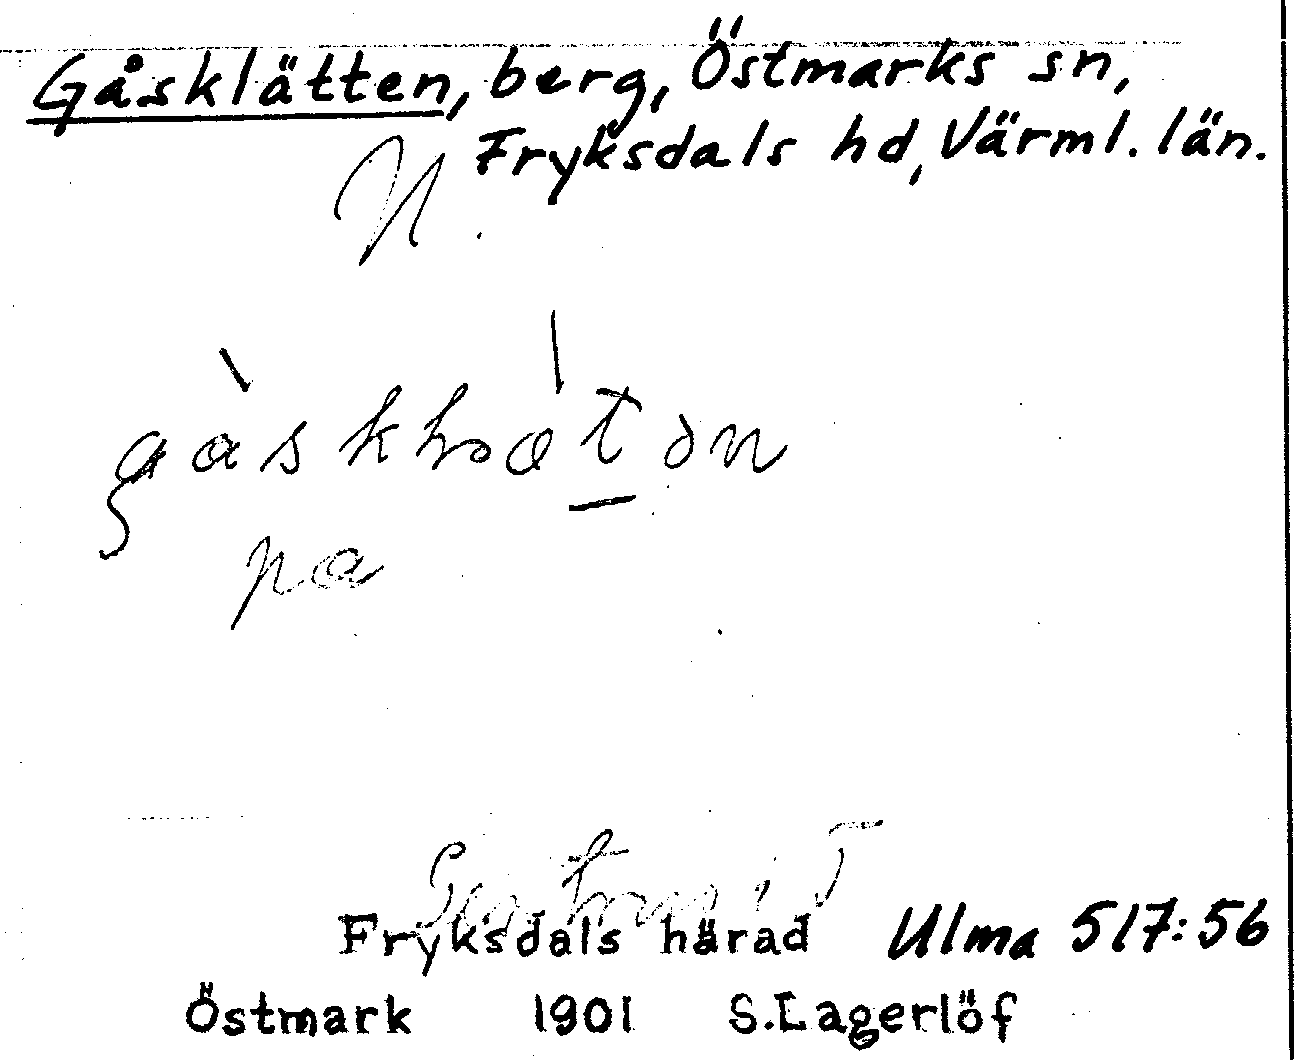 Gåsklätten, berg, Östmarks sn,
Fryksdals hd, Värml. län.
N.
pa
Fryksdals härad Ulma 517:56
Östmark 1901 S. Lagerlöf